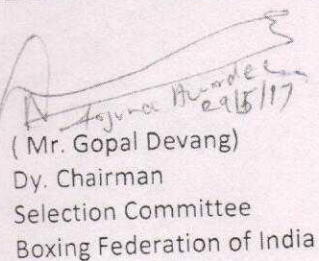 Arjuna Awardee
29/5/17
( Mr. Gopal Devang)
Dy. Chairman
Selection Committee
Boxing Federation of India